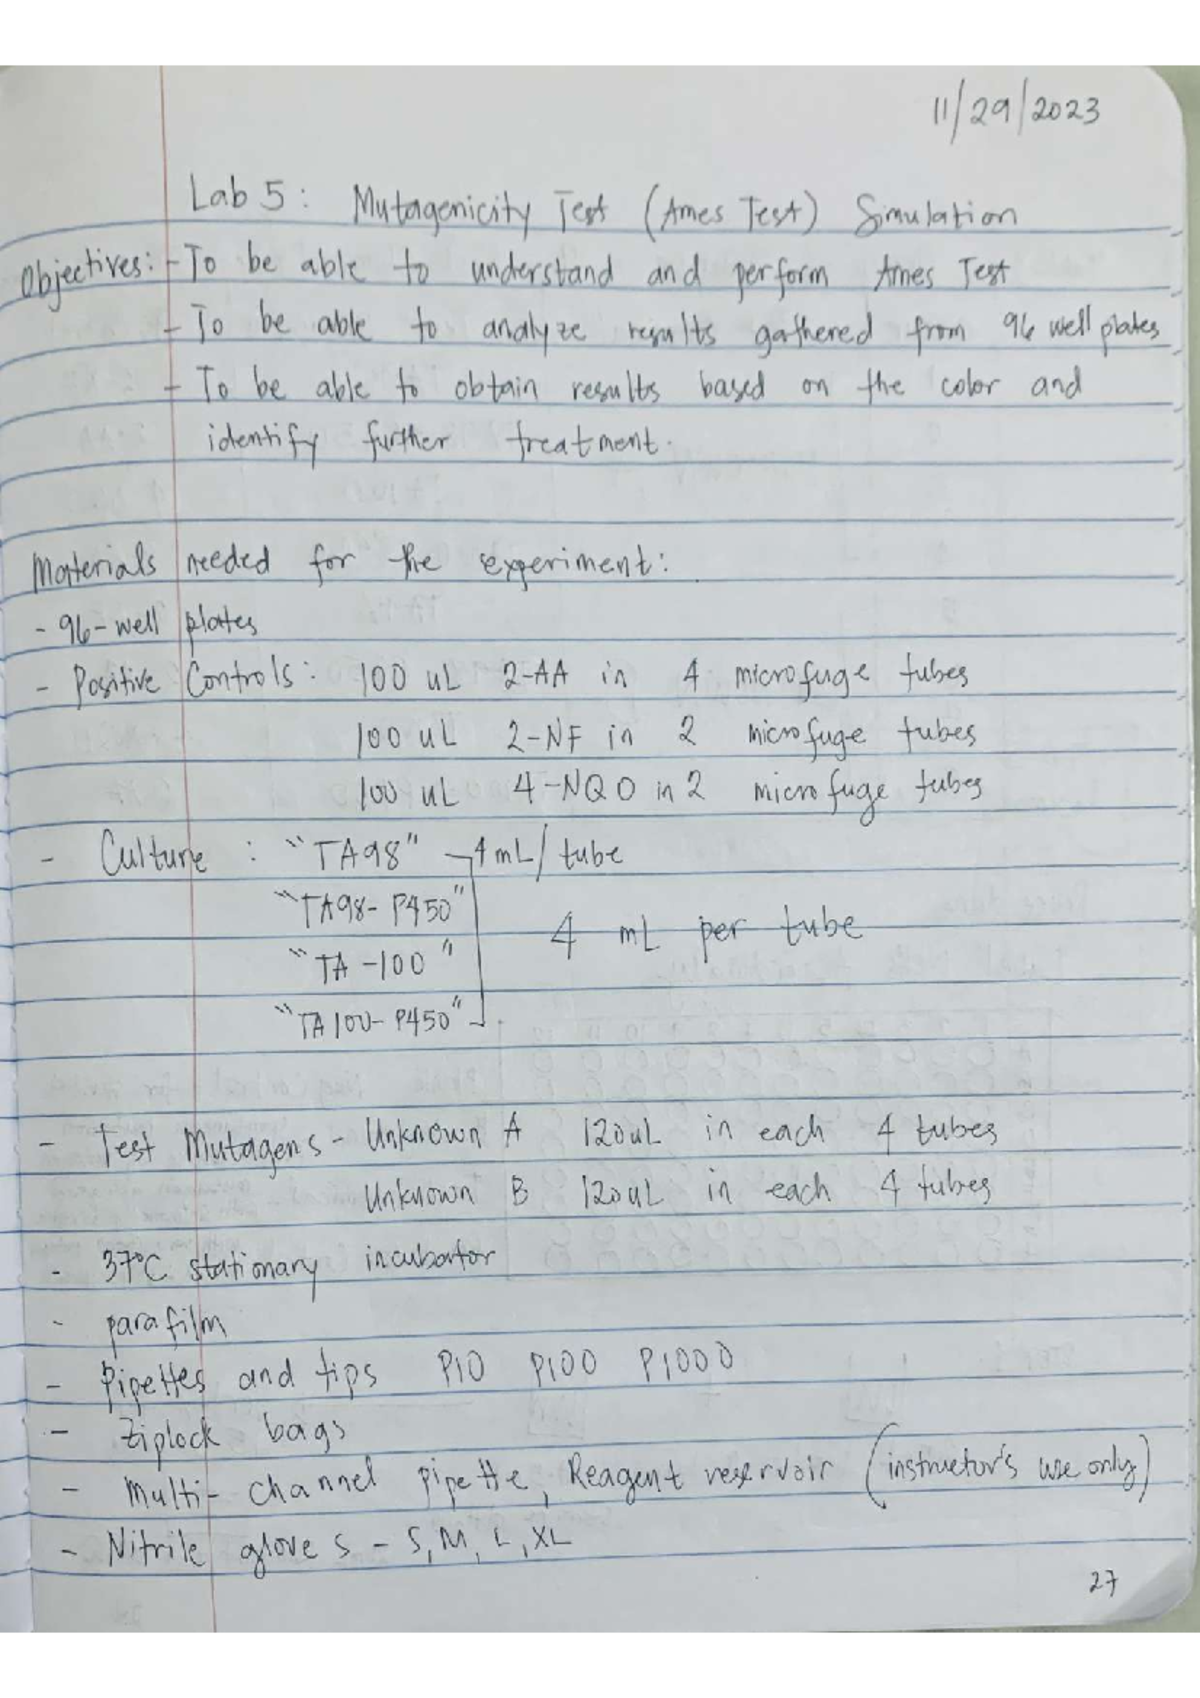 11/29/2023
Lab 5: Mutagenicity Test (Ames Test) Simulation
Objectives: - To be able to understand and perform Ames Test
- To be able to analyze results gathered from 96 well plates
- To be able to obtain results based on the color and
identify further treatment.
Materials needed for the experiment:
- 96-well plates
- Positive Controls: 100 uL 2-AA in 4 microfuge tubes
100 uL 2-NF in 2 microfuge tubes
100 uL 4-NQO in 2 microfuge tubes
- Culture : "TA98" 4 mL/tube
"TA98-P450"
4 mL per tube
"TA-100"
"TA100-P450"
- Test Mutagens - Unknown A 120uL in each 4 tubes
Unknown B 120uL in each 4 tubes
- 37°C stationary incubator
- parafilm
- Pipettes and tips P10 P100 P1000
- Ziplock bags
- Multi-channel pipette, Reagent reservoir (instructor's use only)
- Nitrile gloves - S, M, L, XL
27